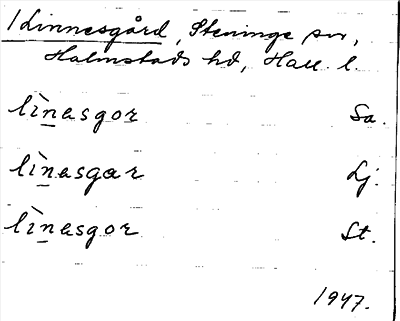 /Linnesgård, Steninge sn,
Halmstads hd, Hall. l.
lìnasgor Sa.
lìnasgar Lj.
lìnasgor St.
1947.